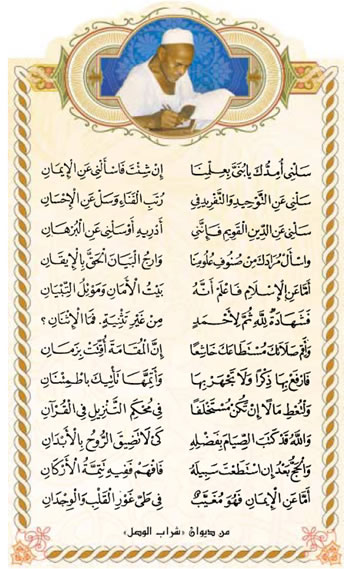 سَلْنِي أُمِدُّكَ يَا بُنَيَّ بِعِلْمِنَا إِنْ شِئْتَ فَاسْأَلْنِي عَنِ الْإِيمَانِ
سَلْنِي عَنِ التَّوْحِيدِ وَالتَّفْرِيدِ فِي رُتَبِ الْفَنَاءِ وَسَلْ عَنِ الْإِحْسَانِ
سَلْنِي عَنِ الدِّينِ الْقَوِيمِ فَإِنَّنِي أَدْرِيهِ أَوْ سَلْنِي عَنِ الْبُرْهَانِ
وَاسْأَلْ مُرَادَكَ مِنْ صُنُوفِ عُلُومِنَا وَارْجُ الْبَيَانَ الْحَقَّ بِالْإِيقَانِ
أَمَّا عَنِ الْإِسْلَامِ فَاعْلَمْ أَنَّهُ بَيْتُ الْأَمَانِ وَمَوْئِلُ التِّبْيَانِ
فَشَهَادَةٌ لِلَّهِ ثُمَّ لِأَحْمَدٍ مِنْ غَيْرِ تَثْنِيَةٍ. فَمَا الْإِثْنَانِ ؟
وَأَقِمْ صَلَاتَكَ مُسْتَطَاعَكَ خَاشِعًا إِنَّ الْمُقَامَةَ أُقِّتَتْ بِزَمَانِ
فَارْفَعْ بِهَا ذِكْرًا وَلَا تَجْهَرْ بِهَا وَأَتِمَّهَا تَأْتِيكَ بِاطْمِئْنَانِ
وَلْتُعْطِ مَالًا إِنْ تَكُنْ مُسْتَخْلَفًا فِي مُحْكَمِ التَّنْزِيلِ فِي الْقُرْآنِ
وَاللَّهُ قَدْ كَتَبَ الصِّيَامَ بِفَضْلِهِ كَيْ لَا تَضِيقَ الرُّوحُ بِالْأَبْدَانِ
وَالْحَجُّ بَعْدُ إِنِ اسْتَطَعْتَ سَبِيلَهُ فَافْهَمْ فَفِيهِ تَتِمَّةُ الْأَرْكَانِ
أَمَّا عَنِ الْإِيمَانِ فَهْوَ مُغَيَّبٌ فِي طَيِّ غَوْرِ الْقَلْبِ وَالْوِجْدَانِ
من ديوان «شراب الوصل»